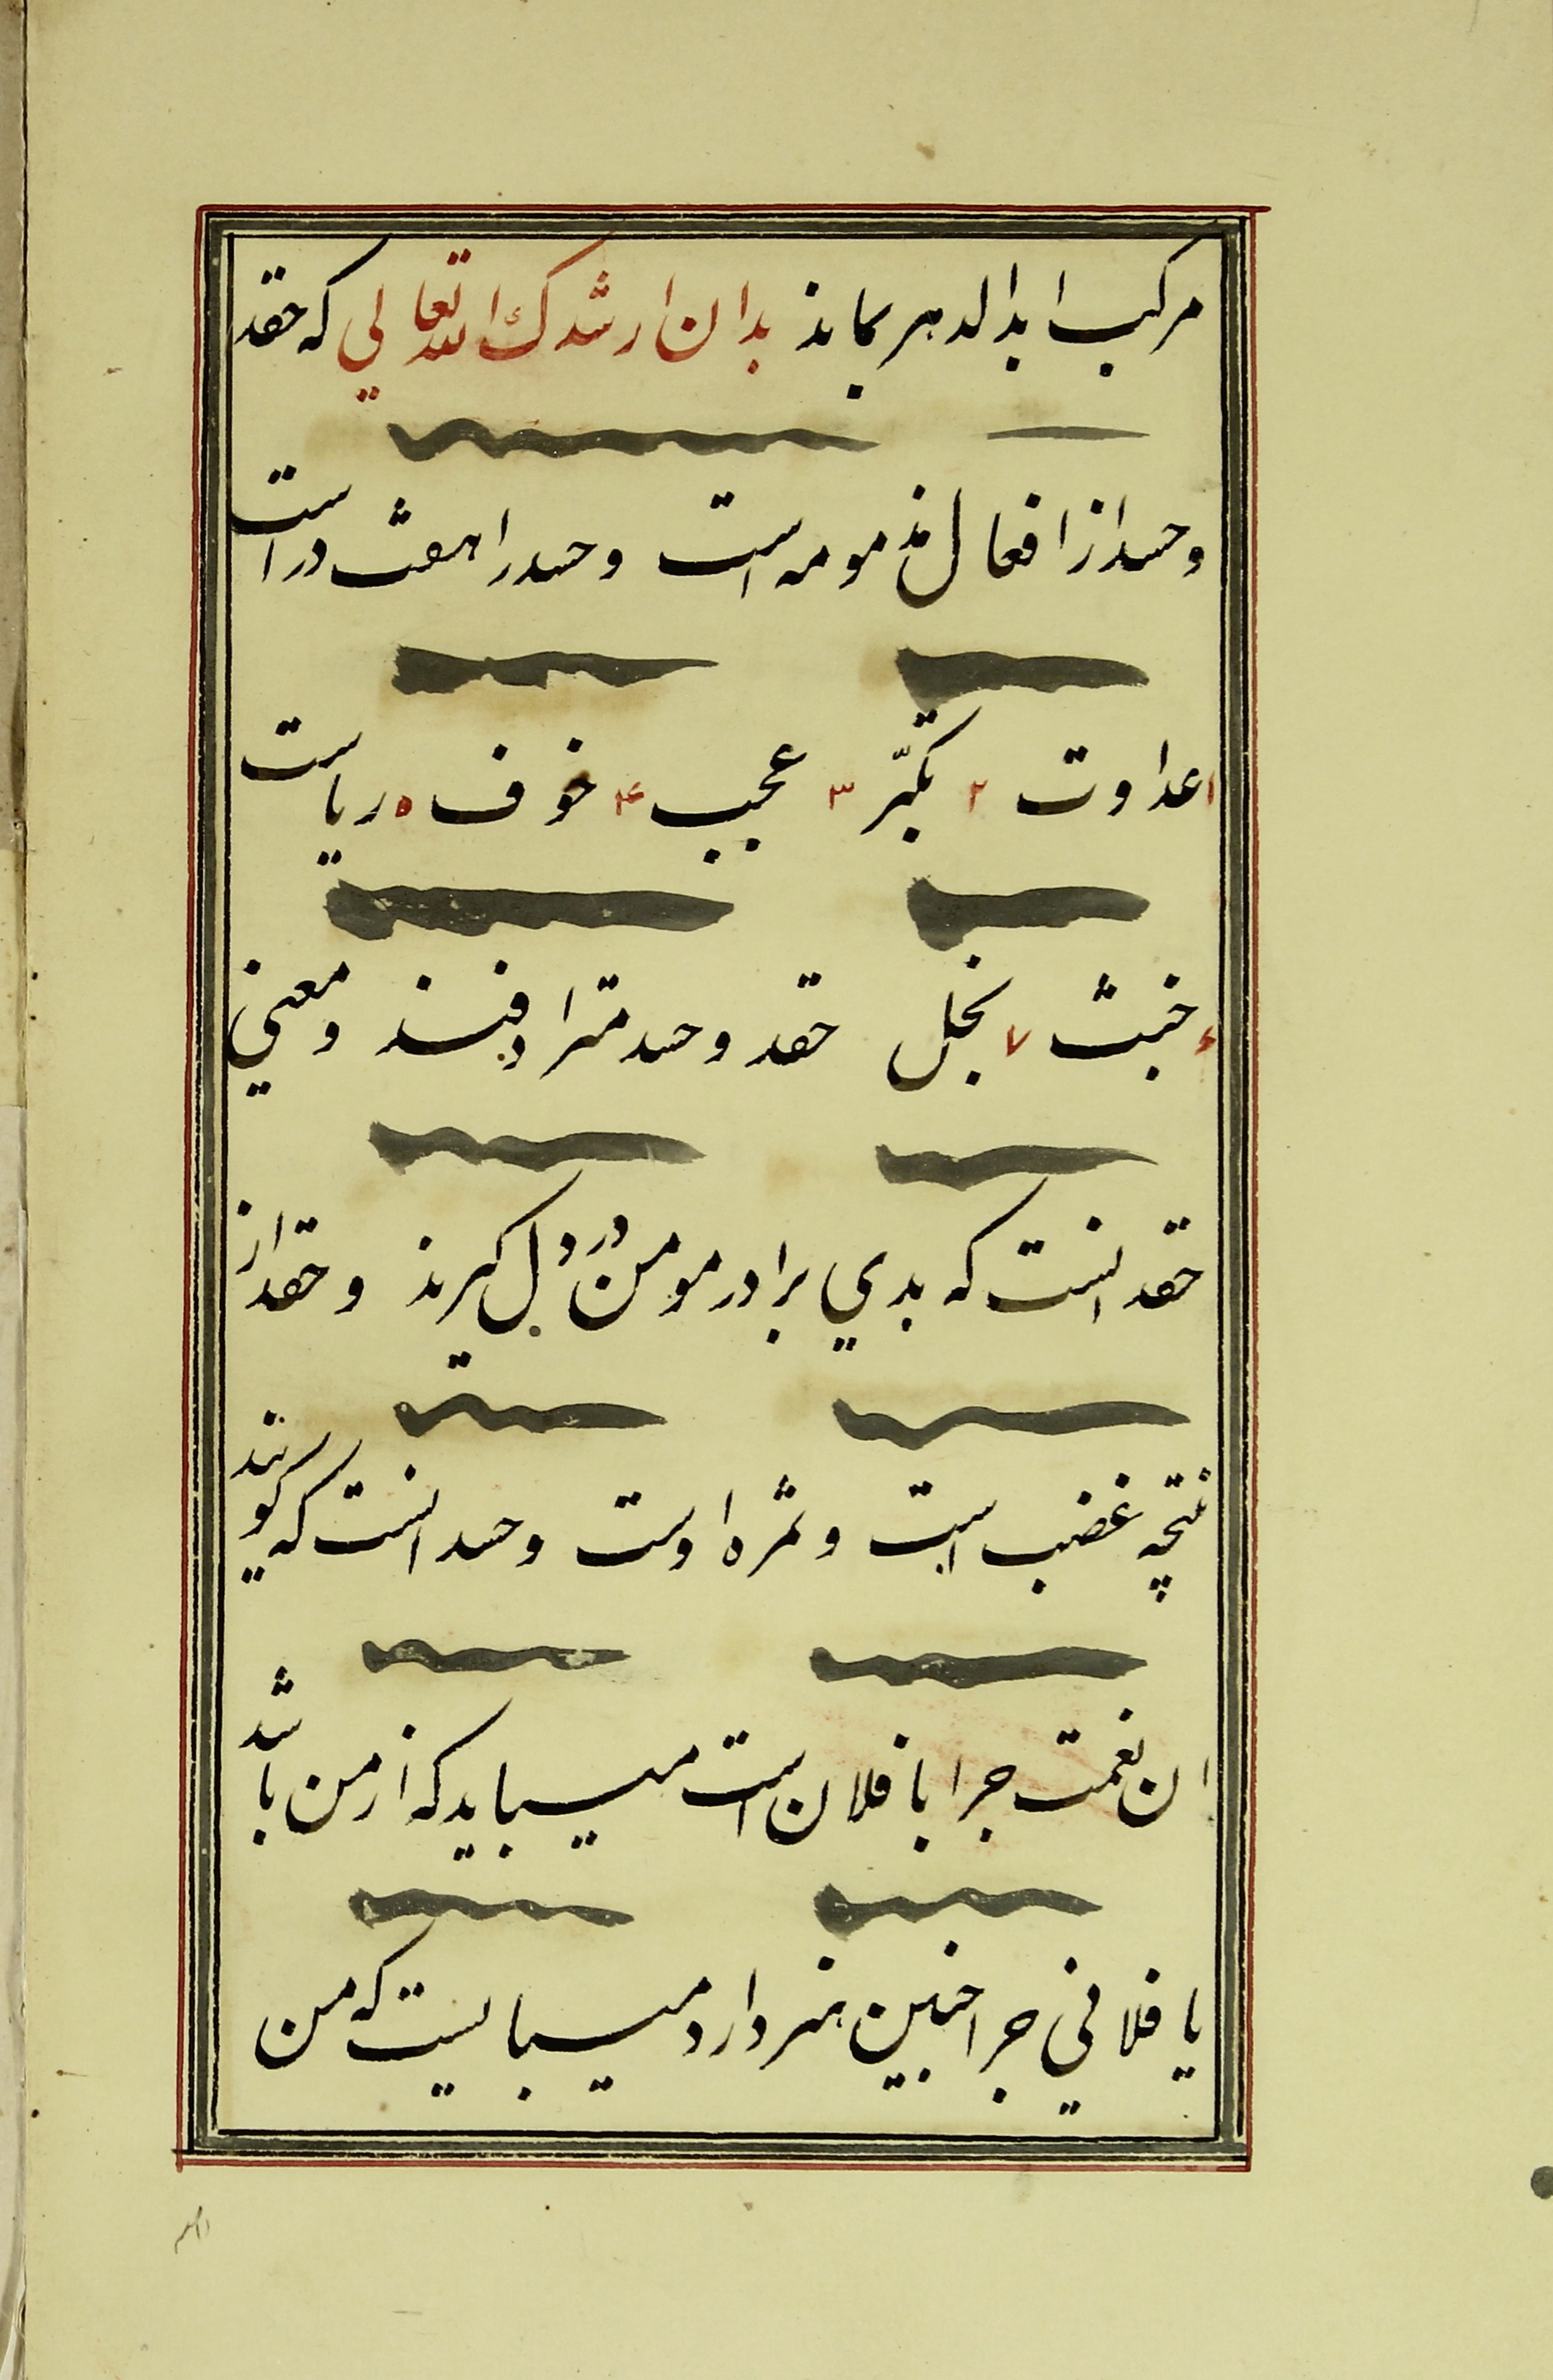 مرکب ابدالدهر بماند بدان ارشدک الله تعالي که حقد
و حسد از افعال مذمومه است و حسد را هفت در است
۱ عداوت ۲ تکبّر ۳ عجب ۴ خوف ۵ ریاست
۶ خبث ۷ بخل حقد و حسد مترادفند و معني
حقد انست که بدي برادر مومن در دل کیرند و حقد از
نتیجه غضب است و ثمره اوست و حسد انست که کویند
ان نعمت چرا با فلان است میباید که از من باشد
یا فلاني چرا چنین هنر دارد میبایست که من